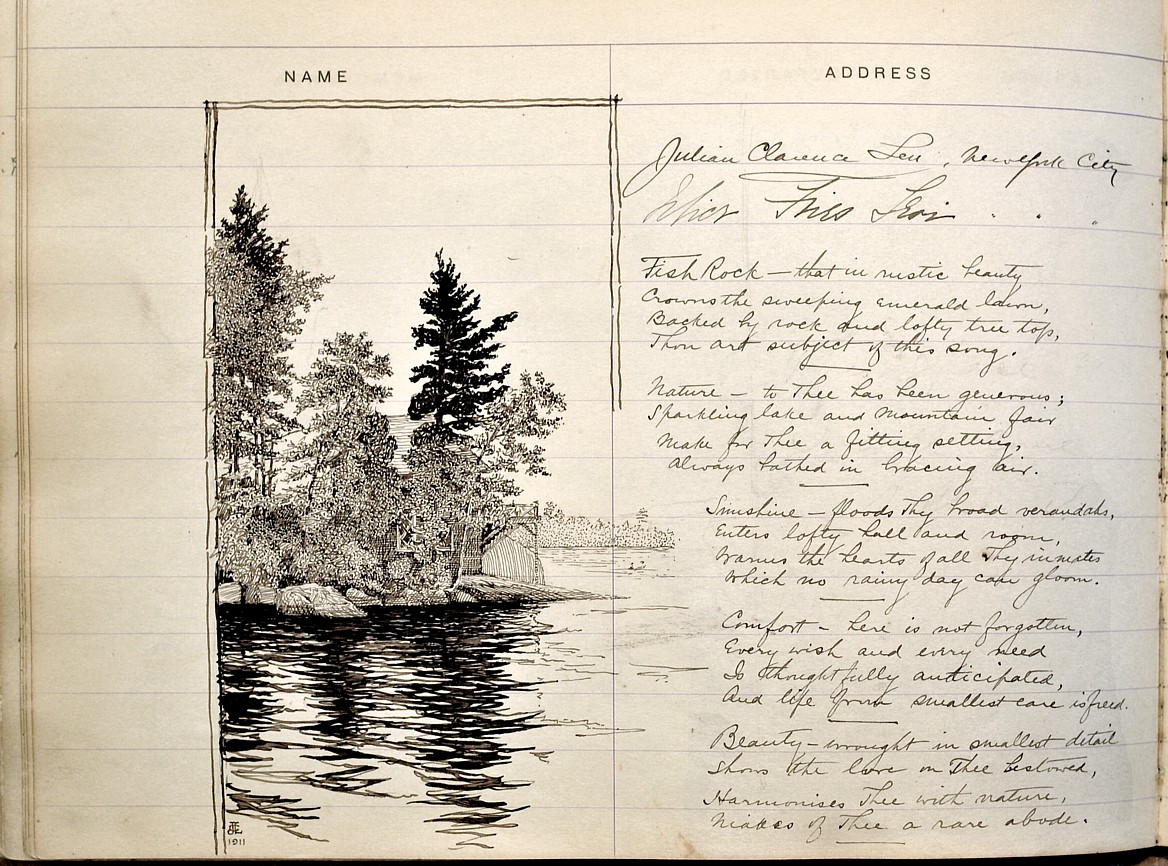 NAME
ADDRESS
Julian Clarence Levi, New York City
Fries Levi " " "
Fish Rock – that in rustic beauty
Crowns the sweeping emerald lawn,
Backed by rock and lofty tree top,
Thou art subject of this song.
Nature – to Thee has been generous;
Sparkling lake and mountain fair
Make for Thee a fitting setting,
Always bathed in bracing air.
Sunshine – floods Thy broad verandahs,
Enters lofty hall and room,
Warms the hearts of all Thy inmates
Which no rainy day can gloom.
Comfort – here is not forgotten,
Every wish and every need
Is thoughtfully anticipated,
And life from smallest care is freed.
Beauty – wrought in smallest detail
Shows the love on Thee bestowed,
Harmonises Thee with nature,
Makes of Thee a rare abode.
1911